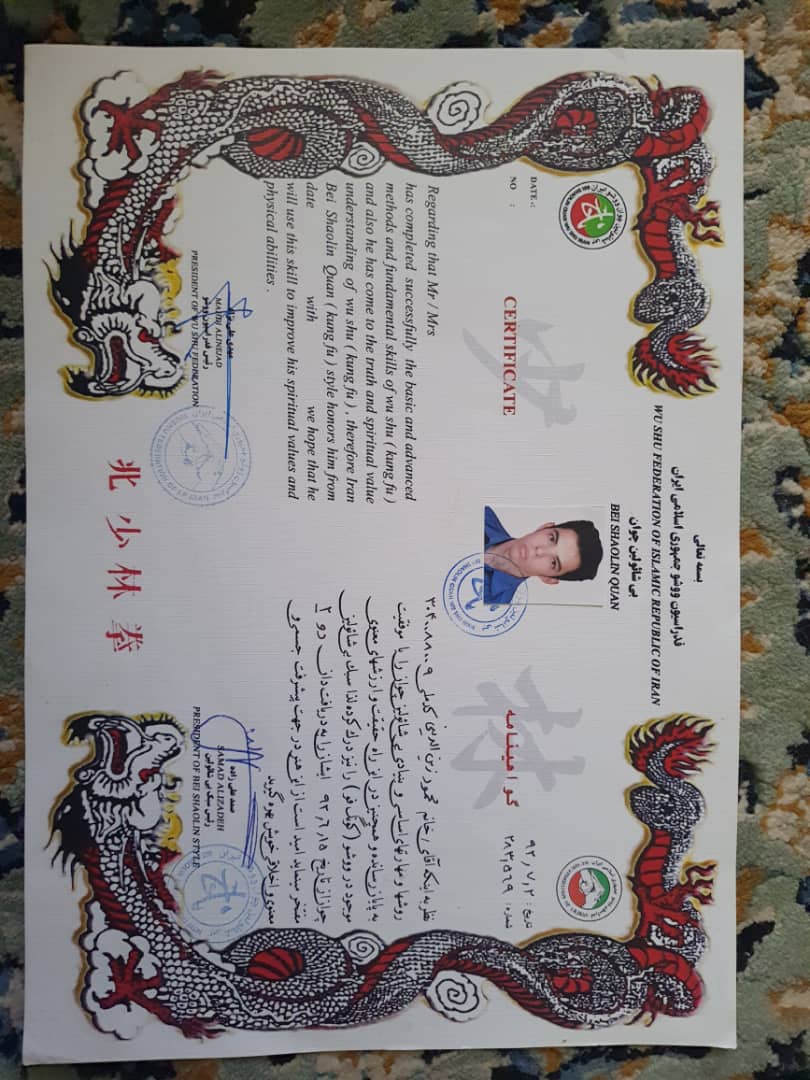 بسمه تعالی
فدراسیون ووشو جمهوری اسلامی ایران
WU SHU FEDERATION OF ISLAMIC REPUBLIC OF IRAN
بی شائولین جوان
BEI SHAOLIN QUAN
DATE :
NO :
CERTIFICATE
Regarding that Mr / Mrs
has completed successfully the basic and advanced
methods and fundamental skills of wu shu ( kung fu )
and also he has come to the truth and spiritual value
understanding of wu shu ( kung fu ) , therefore Iran
Bei Shaolin Quan ( kung fu ) style honors him from
date with we hope that he
will use this skill to improve his spiritual values and
physical abilities .
تاریخ : ۹۲,۷,۲
شماره : ۲۸۳,۵۶۹
گواهینامه
نظر به اینکه آقای / خانم محمود زین الدینی ۳۰۴۰۰۸۸۰۰۹
روشها و مهارتهای اساسی و بنیادی بی شائولین جوان را با موفقیت
به پایان رسانده و همچنین در این راه حقیقت و ارزشهای معنوی
موجود در ووشو ( کونگ فو ) را نیز درک کرده لذا سبک بی شائولین
جوان از تاریخ ۹۲,۶,۱۵ ایشان را به دریافت دان دو ۲
مفتخر مینماید امید است از این هنر در جهت پیشرفت جسمی و
معنوی و اخلاقی خویش بهره گیرید
مهدی علی نژاد
رئیس فدراسیون ووشو
MAHDI ALINEJAD
PRESIDENT OF WU SHU FEDERATION
صمد علی زاده
رئیس سبک بی شائولین
SAMAD ALIZADEH
PRESIDENT OF BEI SHAOLIN STYLE
少 林
北 少 林 拳